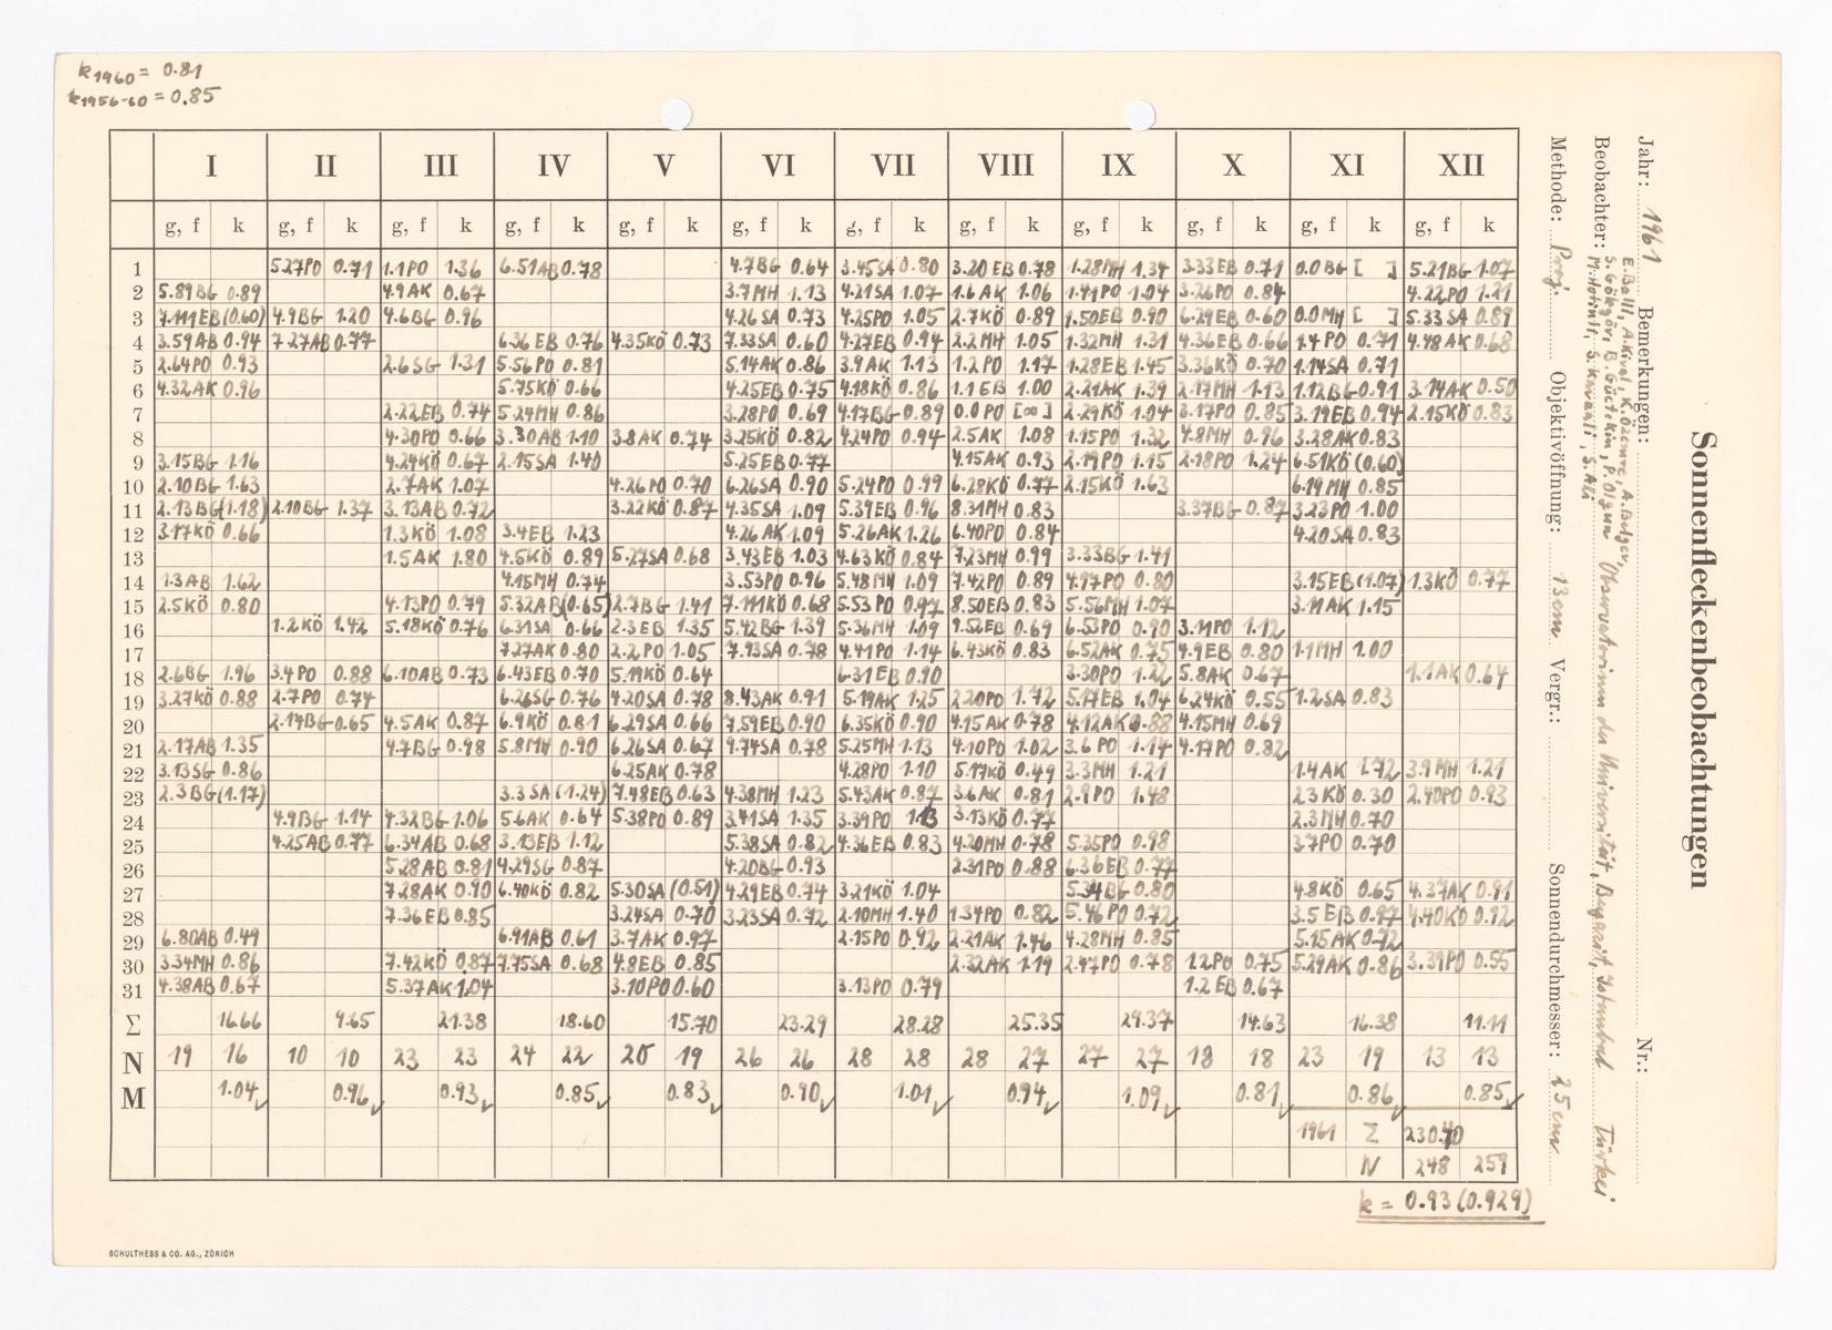 k1960 = 0.81
k1956-60 = 0.85
I II III IV V VI VII VIII IX X XI XII
g, f k g, f k g, f k g, f k g, f k g, f k g, f k g, f k g, f k g, f k g, f k g, f k
1 5.27PO 0.71 1.1PO 1.36 6.51AB 0.78 4.7BG 0.64 3.45SA 0.80 3.20EB 0.78 1.28MH 1.34 3.33EB 0.71 0.0BG [ ] 5.21BG 1.07
2 5.89BG 0.89 4.9AK 0.67 3.7MH 1.13 4.21SA 1.07 1.6AK 1.06 1.41PO 1.04 3.26PO 0.84 4.22PO 1.21
3 7.111EB (0.60) 4.9BG 1.20 4.6BG 0.96 4.26SA 0.73 4.25PO 1.05 2.7KÖ 0.89 1.50EB 0.90 6.29EB 0.60 0.0MH [ ] 5.33SA 0.89
4 3.59AB 0.94 7.27AB 0.77 6.36EB 0.76 4.35KÖ 0.73 7.33SA 0.60 4.27EB 0.94 2.2MH 1.05 1.32MH 1.31 4.36EB 0.66 1.4PO 0.71 4.48AK 0.68
5 2.64PO 0.93 2.6SG 1.31 5.56PO 0.81 5.14AK 0.86 3.9AK 1.13 1.2PO 1.17 1.28EB 1.45 3.36KÖ 0.70 1.14SA 0.71
6 4.32AK 0.96 5.75KÖ 0.66 4.25EB 0.75 4.18KÖ 0.86 1.1EB 1.00 2.21AK 1.39 2.17MH 1.13 1.12BG 0.91 3.14AK 0.50
7 2.22EB 0.74 5.24MH 0.86 3.28PO 0.69 4.17BG 0.89 0.0PO [∞] 2.29KÖ 1.04 3.17PO 0.85 3.19EB 0.94 2.15KÖ 0.83
8 4.30PO 0.66 3.30AB 1.10 3.8AK 0.74 3.25KÖ 0.82 4.24PO 0.94 2.5AK 1.08 1.15PO 1.32 4.8MH 0.96 3.28AK 0.83
9 3.15BG 1.16 4.24KÖ 0.67 2.15SA 1.40 5.25EB 0.77 4.15AK 0.93 2.19PO 1.15 2.18PO 1.24 6.51KÖ (0.60)
10 2.10BG 1.63 2.7AK 1.07 4.26PO 0.70 6.26SA 0.90 5.24PO 0.99 6.28KÖ 0.77 2.15KÖ 1.63 6.19MH 0.85
11 2.13BG (1.18) 2.10BG 1.37 3.13AB 0.72 3.22KÖ 0.87 4.35SA 1.09 5.39EB 0.96 8.31MH 0.83 3.37BG 0.87 3.23PO 1.00
12 3.17KÖ 0.66 1.3KÖ 1.08 3.4EB 1.23 4.26AK 1.09 5.26AK 1.26 6.40PO 0.84 4.20SA 0.83
13 1.5AK 1.80 4.5KÖ 0.89 5.27SA 0.68 3.43EB 1.03 4.63KÖ 0.84 7.23MH 0.99 3.33BG 1.41
14 1.3AB 1.62 4.15MH 0.74 3.53PO 0.96 5.48MH 1.09 7.42PO 0.89 4.77PO 0.80 3.15EB (1.07) 1.3KÖ 0.77
15 2.5KÖ 0.80 4.13PO 0.79 5.32AB (0.65) 2.7BG 1.41 7.111KÖ 0.68 5.53PO 0.97 8.50EB 0.83 5.56MH 1.07 3.11AK 1.15
16 1.2KÖ 1.42 5.18KÖ 0.76 6.31SA 0.66 2.3EB 1.35 5.42BG 1.39 5.36MH 1.09 9.52EB 0.69 6.53PO 0.90 3.11PO 1.12
17 7.27AK 0.80 2.2PO 1.05 7.93SA 0.78 4.41PO 1.14 6.43KÖ 0.83 6.52AK 0.75 4.9EB 0.80 1.1MH 1.00
18 2.6BG 1.96 3.4PO 0.88 6.10AB 0.73 6.43EB 0.70 5.11KÖ 0.64 6.31EB 0.90 3.30PO 1.22 5.8AK 0.67 1.1AK 0.64
19 3.27KÖ 0.88 2.7PO 0.74 6.26SG 0.76 4.20SA 0.78 8.43AK 0.91 5.19AK 1.25 2.20PO 1.72 5.17EB 1.04 6.24KÖ 0.55 1.2SA 0.83
20 2.14BG 0.65 4.5AK 0.87 6.9KÖ 0.81 6.29SA 0.66 7.59EB 0.90 6.35KÖ 0.90 4.15AK 0.78 4.12AK 0.88 4.15MH 0.69
21 2.17AB 1.35 4.7BG 0.98 5.8MH 0.90 6.26SA 0.67 9.74SA 0.78 5.25MH 1.13 4.10PO 1.02 3.6PO 1.14 4.17PO 0.82
22 3.13SG 0.86 6.25AK 0.78 4.28PO 1.10 5.17KÖ 0.49 3.3MH 1.21 1.4AK 1.72 3.9MH 1.21
23 2.3BG (1.17) 3.3SA (1.24) 7.48EB 0.63 4.38MH 1.23 5.43AK 0.87 3.6AK 0.81 2.9PO 1.48 2.3KÖ 0.30 2.40PO 0.93
24 4.9BG 1.14 4.32BG 1.06 5.6AK 0.64 5.38PO 0.89 3.41SA 1.35 3.39PO 1.13 3.13KÖ 0.77 2.3MH 0.70
25 4.25AB 0.77 6.34AB 0.68 3.13EB 1.12 5.38SA 0.82 4.36EB 0.83 4.20MH 0.78 5.35PO 0.98 3.7PO 0.70
26 5.28AB 0.81 4.29SG 0.87 4.20BG 0.93 2.31PO 0.88 6.36EB 0.77
27 7.28AK 0.90 6.40KÖ 0.82 5.30SA (0.51) 4.29EB 0.74 3.21KÖ 1.04 5.34BG 0.80 4.8KÖ 0.65 4.37AK 0.91
28 7.36EB 0.85 3.24SA 0.70 3.23SA 0.72 2.10MH 1.40 1.34PO 0.82 5.46PO 0.72 3.5EB 0.97 4.40KÖ 0.92
29 6.80AB 0.49 6.91AB 0.61 3.7AK 0.97 2.15PO 0.92 2.21AK 1.46 4.28MH 0.85 5.15AK 0.72
30 3.34MH 0.86 7.42KÖ 0.87 7.75SA 0.68 4.8EB 0.85 2.32AK 1.19 2.47PO 0.78 1.2PO 0.75 5.29AK 0.86 3.39PO 0.55
31 4.38AB 0.67 5.37AK 1.04 3.10PO 0.60 3.13PO 0.79 1.2EB 0.67
Σ 16.66 9.65 21.38 18.60 15.70 23.29 28.28 25.35 29.37 14.63 16.38 11.11
N 19 16 10 10 23 23 24 22 20 19 26 26 28 28 28 27 27 27 18 18 23 19 13 13
M 1.04 0.96 0.93 0.85 0.83 0.90 1.01 0.94 1.09 0.81 0.86 0.85
1961 Σ 230.40
N 248 259
k = 0.93 (0.929)
SCHULTHESS & CO. AG., ZÜRICH
Sonnenfleckenbeobachtungen
Jahr: 1961 Bemerkungen: Nr.:
Beobachter: Observatorium der Universität, Beyazit, Istanbul Türkei
Methode: Proj. Objektivöffnung: 13cm Vergr.: Sonnendurchmesser: 25cm